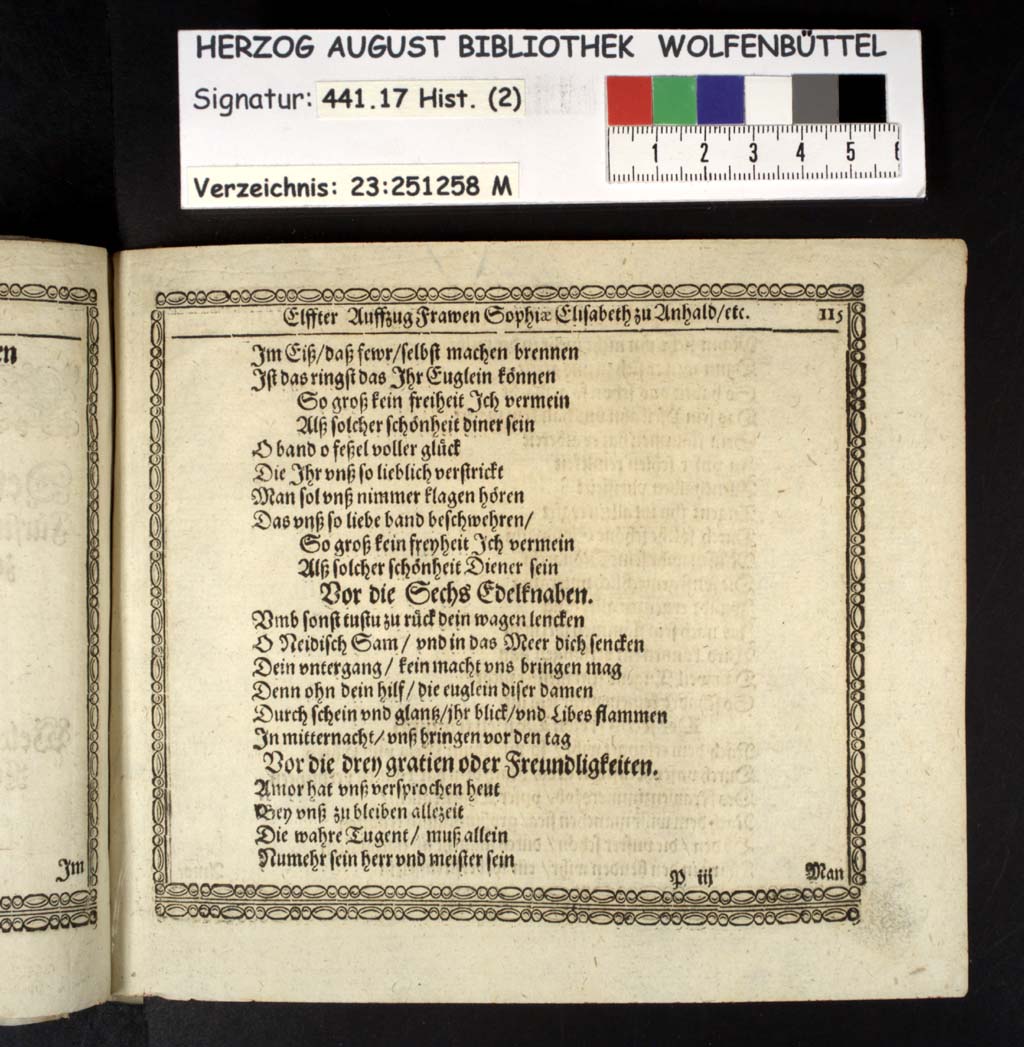 HERZOG AUGUST BIBLIOTHEK WOLFENBÜTTEL
Signatur: 441.17 Hist. (2)
Verzeichnis: 23:251258 M
1 2 3 4 5 6
en
Im
Elffter Auffzug Frawen Sophiæ Elisabeth zu Anhald/etc. 115
Im Eiß/daß fewr/selbst machen brennen
Ist das ringst das Ihr Euglein können
So groß kein freiheit Ich vermein
Alß solcher schönheit diner sein
O band o feßel voller glück
Die Ihr vnß so lieblich verstrickt
Man sol vnß nimmer klagen hören
Das vnß so liebe band beschwehren/
So groß kein freyheit Ich vermein
Alß solcher schönheit Diener sein
Vor die Sechs Edelknaben.
Vmb sonst tustu zu rück dein wagen lencken
O Neidisch Sam/ vnd in das Meer dich sencken
Dein vntergang/ kein macht vns bringen mag
Denn ohn dein hilf/ die euglein diser damen
Durch schein vnd glantz/jhr blick/vnd Libes flammen
In mitternacht/ vnß bringen vor den tag
Vor die drey gratien oder Freundligkeiten.
Amor hat vnß versprochen heut
Bey vnß zu bleiben allezeit
Die wahre Tugent/ muß allein
Numehr sein herr vnd meister sein
P iij Man